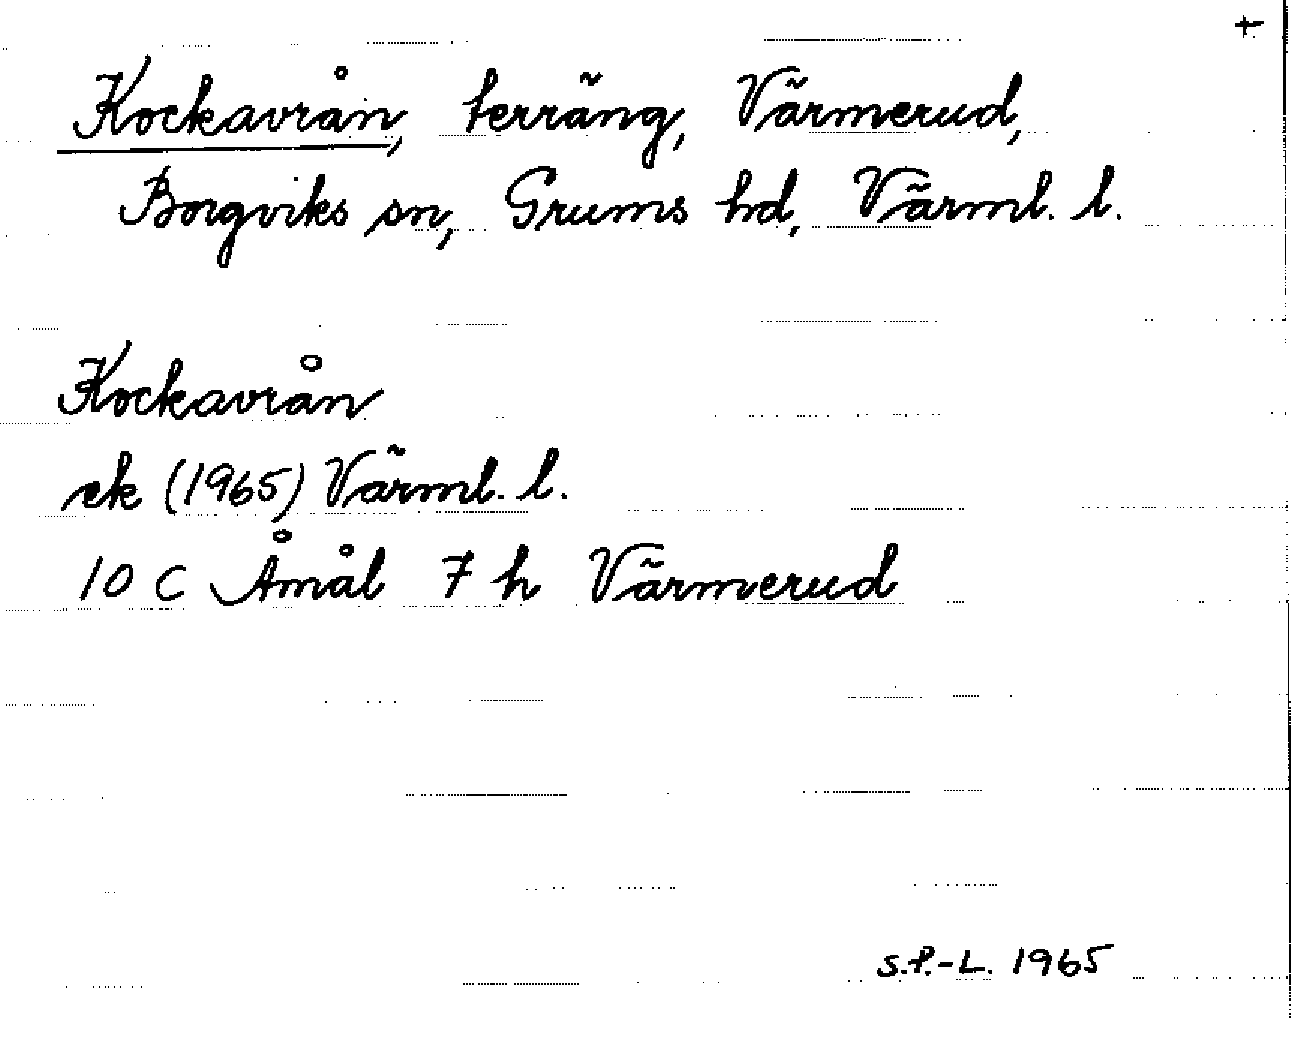 +
Kockavrån, terräng, Värmerud,
Borgviks sn, Grums hd, Värml. l.
Kockavrån
ek (1965) Värml. l.
10 C Åmål 7 h Värmerud
S.P.-L. 1965